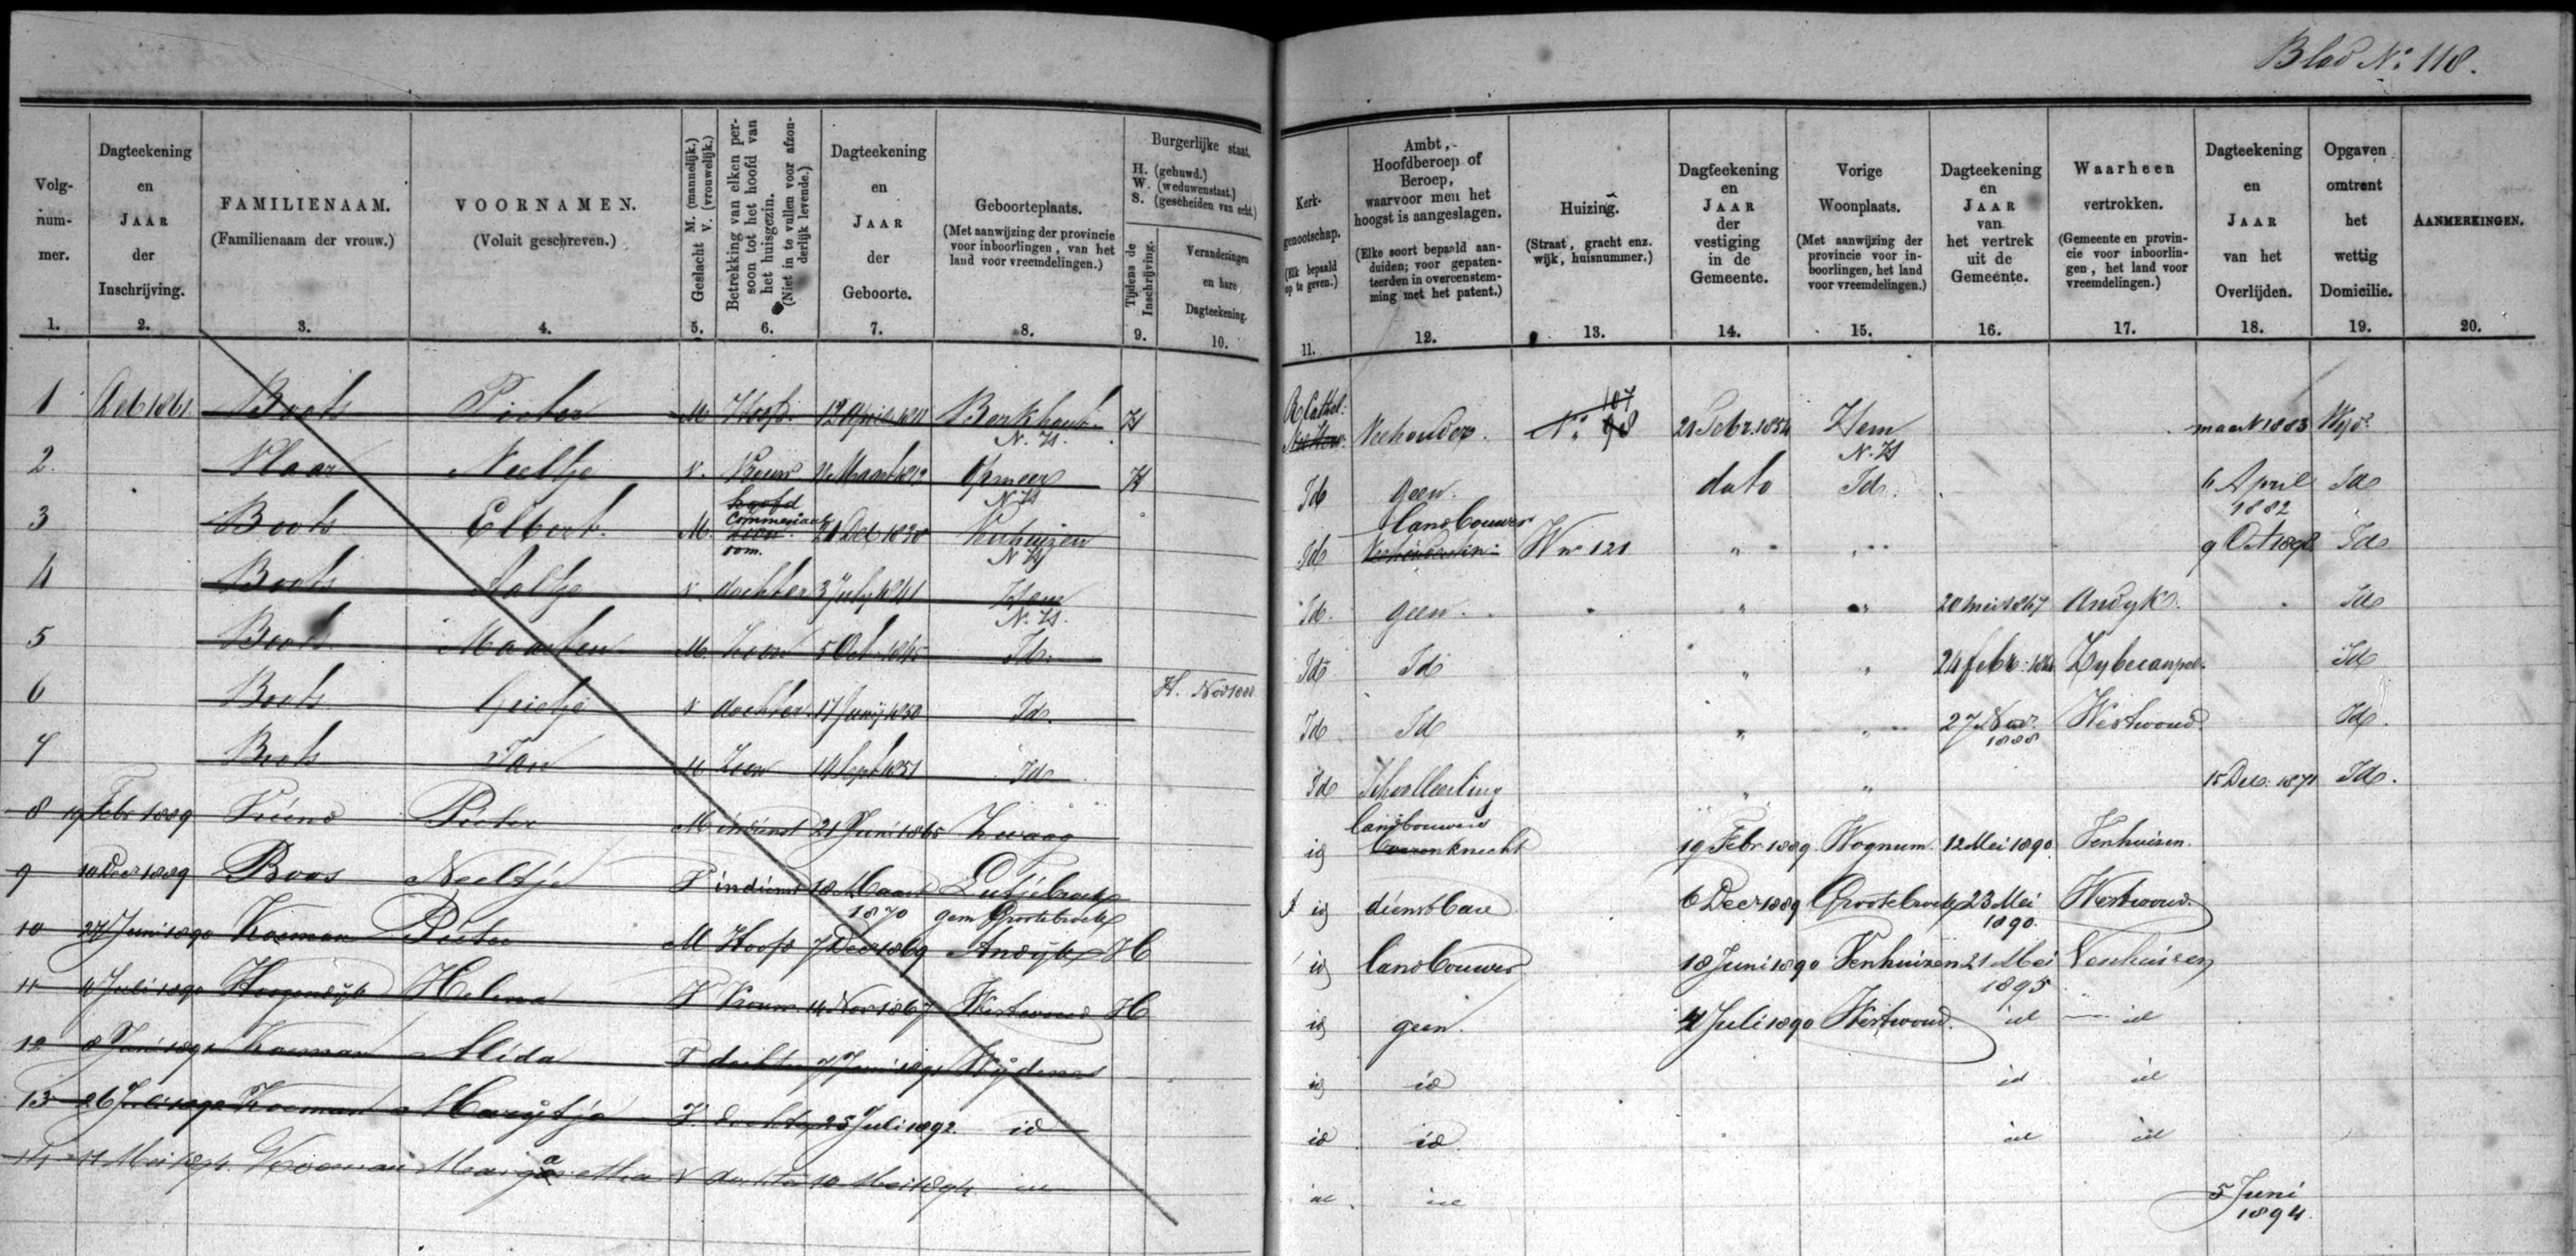 Blad No. 118.
Volgnummer.
Dagteekening en JAAR der Inschrijving.
FAMILIENAAM. (Familienaam der vrouw.)
VOORNAMEN. (Voluit geschreven.)
Geslacht M. (mannelijk.) V. (vrouwelijk.)
Betrekking van elken persoon tot het hoofd van het huisgezin. (Niet in te vullen voor afzonderlijk levende.)
Dagteekening en JAAR der Geboorte.
Geboorteplaats. (Met aanwijzing der provincie voor inboorlingen, van het land voor vreemdelingen.)
Burgerlijke staat. H. (gehuwd.) W. (weduwenstaat.) S. (gescheiden van echt.)
Tijdens de Inschrijving.
Veranderingen en hare Dagteekening.
Kerkgenootschap. (Elk bepaald op te geven.)
Ambt, Hoofdberoep of Beroep, waarvoor men het hoogst is aangeslagen. (Elke soort bepaald aanduiden; voor gepatenteerden in overeenstemming met het patent.)
Huizing. (Straat, gracht enz. wijk, huisnummer.)
Dagteekening en JAAR der vestiging in de Gemeente.
Vorige Woonplaats. (Met aanwijzing der provincie voor inboorlingen, het land voor vreemdelingen.)
Dagteekening en JAAR van het vertrek uit de Gemeente.
Waarheen vertrokken. (Gemeente en provincie voor inboorlingen, het land voor vreemdelingen.)
Dagteekening en JAAR van het Overlijden.
Opgaven omtrent het wettig Domicilie.
AANMERKINGEN.
1. 2. 3. 4. 5. 6. 7. 8. 9. 10. 11. 12. 13. 14. 15. 16. 17. 18. 19. 20.
1 Dec 1861 Boots Pieter M Hoofd 12 April 1811 Berkhout N.H. H R Cathol: Veehouder. No. 98 107 21 Febr. 1854 Hem N.H maart 1883 Wyd.
2. Klaar Neeltje V. Vrouw Maart Opmeer N.H H Id geen. dato Id. 6 April 1882 Id
3 Boots Elbert M. hoofd Commensaal Zoon oom. Venhuizen N.H Id landbouwer W no 121 " " 9 Oct Id
4 Boots Aaltje V. dochter 3 July 1841 Hem N.H. Id. geen. " " 20 mei 1867 Andyk. Id
5 Boots Maarten M. Zoon 5 Oct 1845 Id. Id Id " " 24 febr. Zybecarspel. Id
6 Boots Grietje V dochter. 17 Juny 1850 Id. H. Nov 1888 Id Id " " 27 Nov. 1888 Westwoud Id.
7 Boots Jan M Zoon 14 Sept 1851 Id Id Schoolleerling " " 15 Dec. 1871 Id.
8 19 Febr 1889 Vriend Pieter M indienst 21 Juni 1865 Zwaag id landbouwers boerenknecht 19 Febr 1889 Wognum. 12 Mei 1890. Venhuizen.
9 10 Decr 1889 Boos Neeltje V indienst 18 Maart 1870 Lutjebroek gem Grootebroek id dienstbare 6 Decr 1889 Grootebroek 23 Mei 1890. Westwoud.
10 27 Juni 1890 Koeman Pieter M Hoofd 7 Decr 1869 Andijk H id landbouwer 18 Juni 1890 Venhuizen 21 Mei 1895 Venhuizen
11 4 Juli 1890 Hoogendijk Helena V Vrouw 4 Nov 1867 Westwoud H id geen. 4 Juli 1890 Westwoud. id id
12 8 Juni 1891 Koeman Alida V dochter 7 Juni 1891 Wijdenes id id id id
13 26 Juli 1892 Koeman Marijtje V. dochter 25 Juli 1892. id id id id id
14 11 Mei 1894. Kooman Margaretha V dochter 10 Mei 1894 id id id 5 Juni 1894.